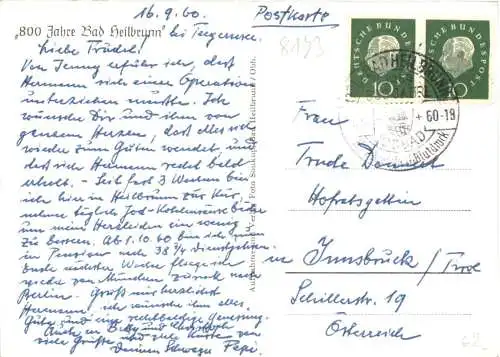 16.9.60.
Postkarte
8193
"800 Jahre Bad Heilbrunn" bei Tegernsee.
Liebe Trudel!
Von Jenny erfuhr ich, dass
Hermann sich einer Operation
unterziehen musste. Ich
wünsche Dir und ihm von
ganzem Herzen, dass alles sich
wieder zum Guten wendet, und
dass sich Hermann recht bald
erholt. - Seit fast 3 Wochen bin
ich hier in Heilbrunn zur Kur,
nehme täglich Jod-Kohlensäure bäder
um mein Herzleiden ein wenig
zu bessern. Ab 1.10.60 bin ich
in Pension nach 38 ¾ Dienstjahren.
Ende nächster Woche fliege ich
wieder von München zurück nach
Berlin. Grüß mir herzlichst
Hermann, ich wünsche ihm alles
Gute und eine recht baldige Genesung.
Auch an Betty und
viele Grüße und viele Küsse von
Deinem Schwager Pepi.
DEUTSCHE BUNDESPOST
10
DEUTSCHE BUNDESPOST
10
BAD HEILBRUNN
60-19
Frau
Trude
Hofratsgattin
in Innsbruck / Tirol
Schillerstr. 19
Österreich